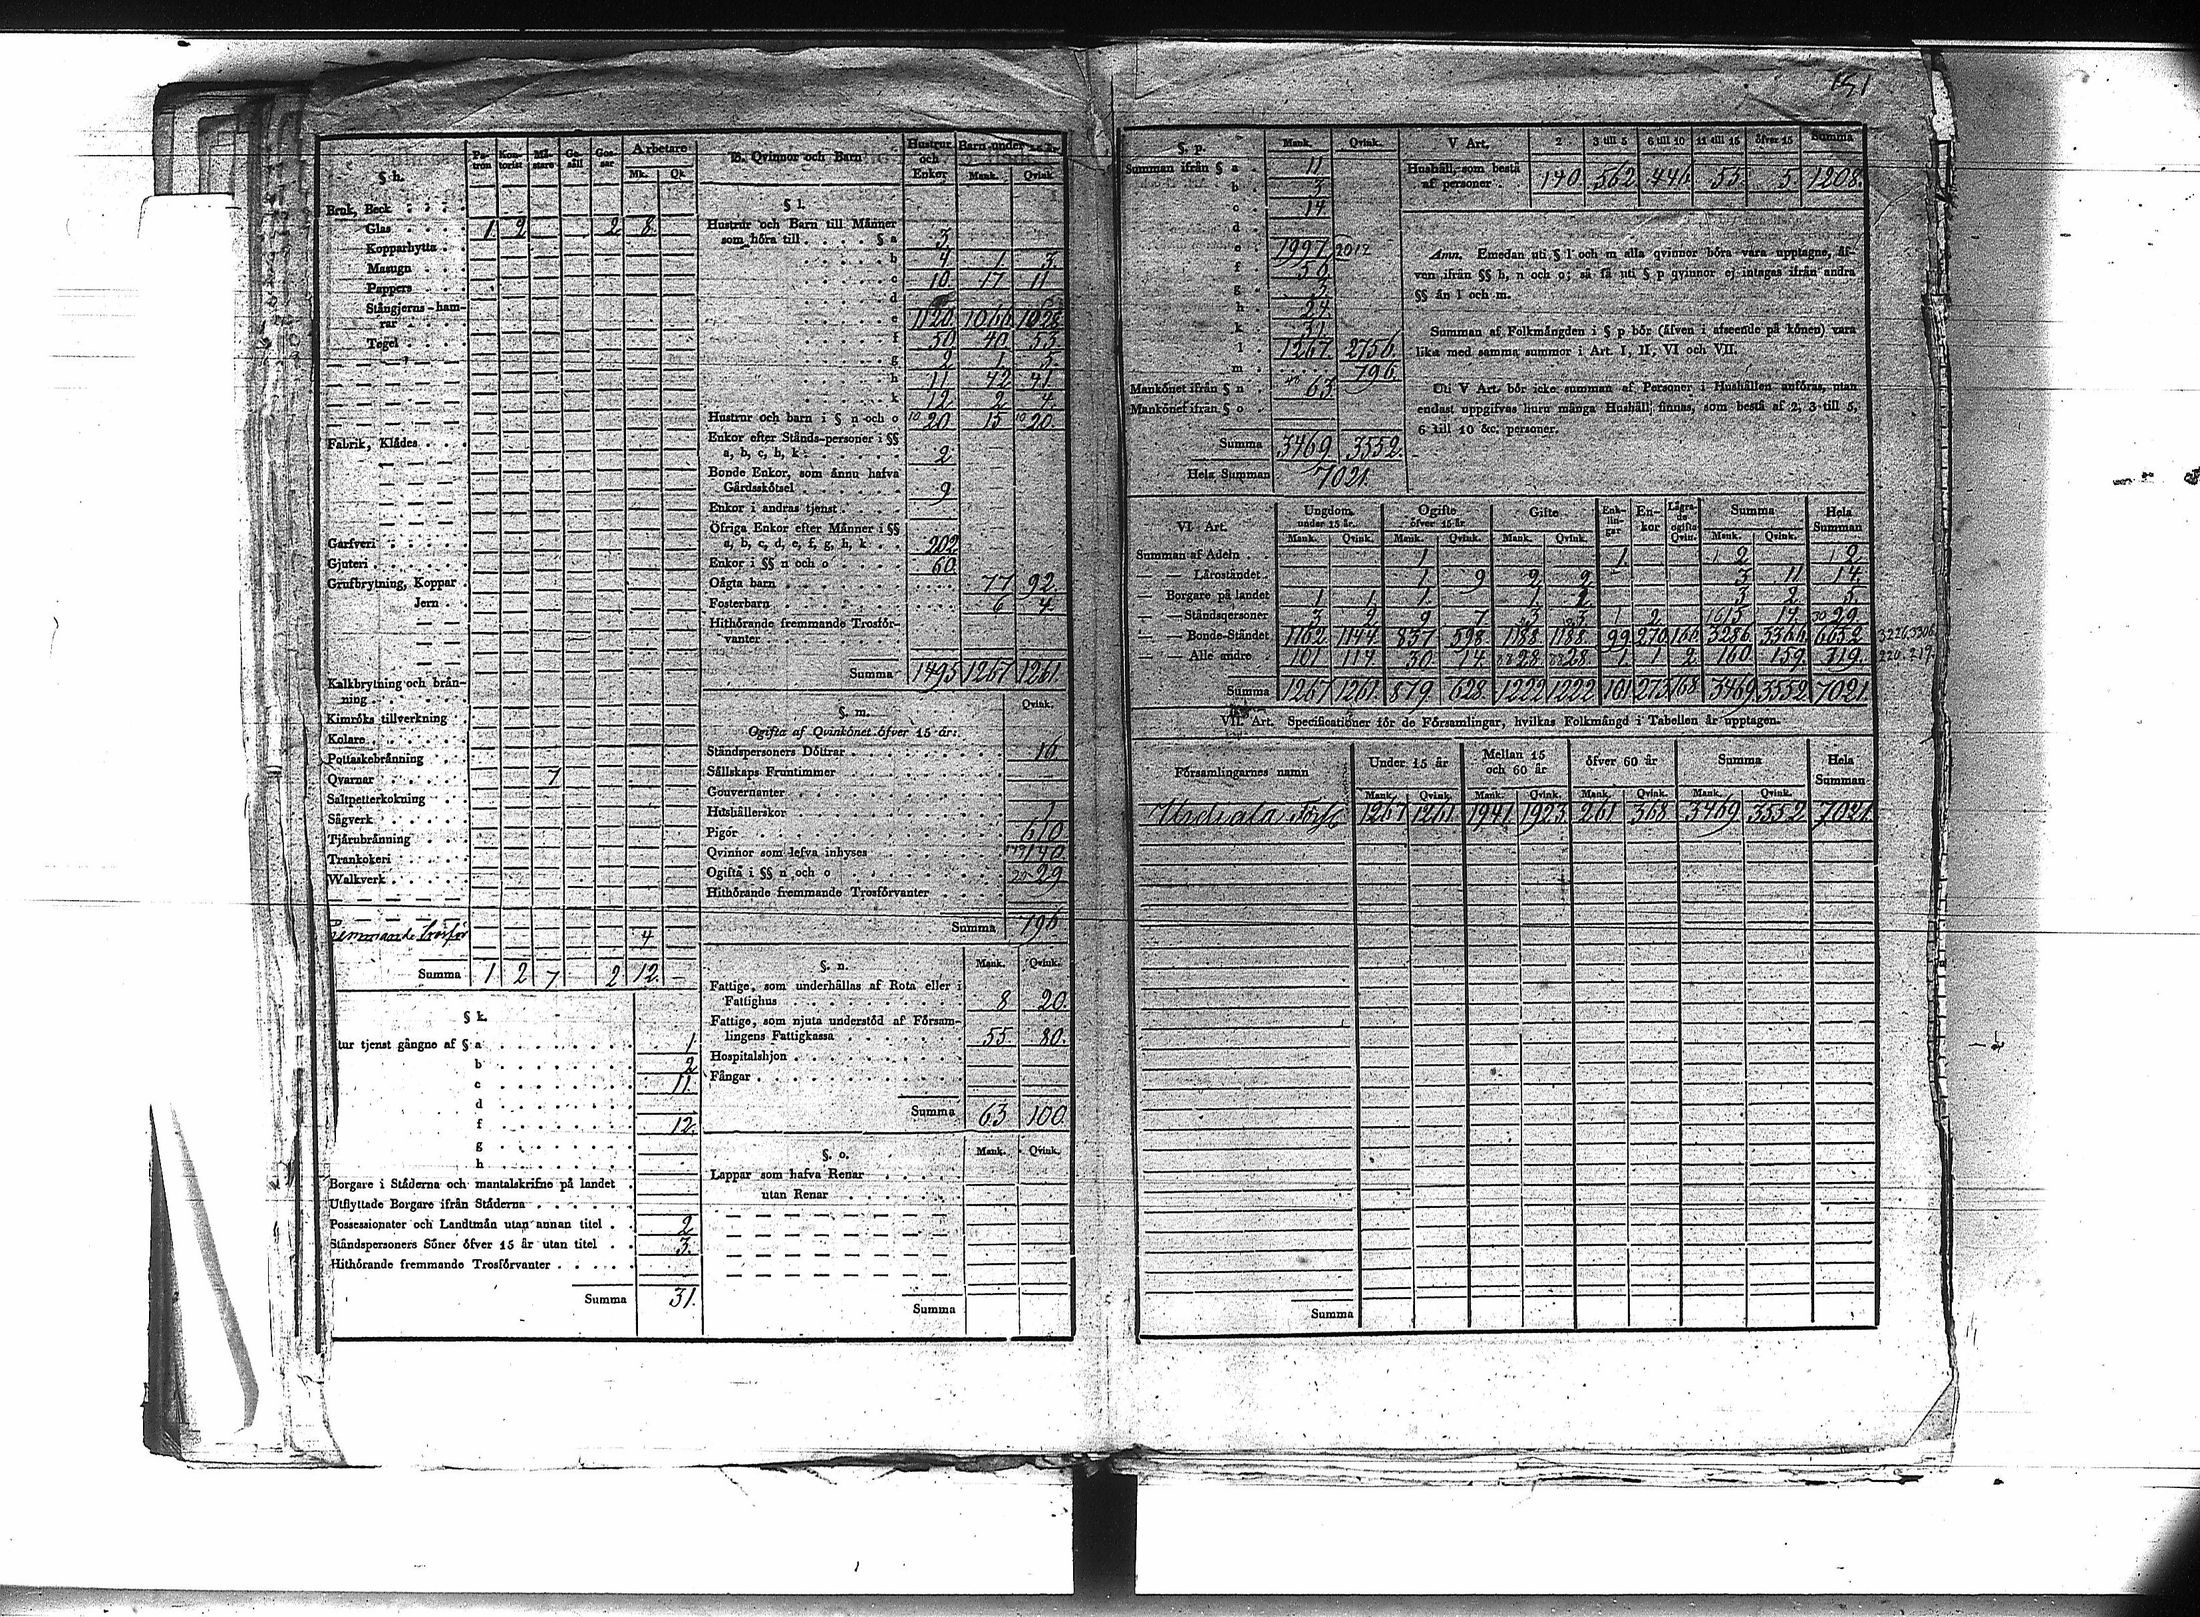 151
§ h.
Pa-tron Kon-torist Mä-stare Ge-säll Gos-sar Arbetare
Mk. Qk.
Bruk, Beck
Glas 1 2 2 8
Kopparhytta
Masugn
Pappers
Stångjerns-ham-
rar
Tegel
Fabrik, Klädes
Garfveri
Gjuteri
Grufbrytning, Koppar
Jern
Kalkbrytning och brän-
ning
Kimröks tillverkning
Kolare
Pottaskebränning
Qvarnar 7
Saltpetterkokning
Sågverk
Tjärubränning
Trankokeri
Walkverk
Fremmande Trosför 4
Summa 1 2 7 2 12 —
§ k.
tur tjenst gångne af § a 1
b 2
c 11.
d
f 12.
g
h
Borgare i Städerna och mantalskrifne på landet
Utflyttade Borgare ifrån Städerna
Possessionater och Landtmän utan annan titel 2
Ståndspersoners Söner öfver 15 år utan titel 3.
Hithörande fremmande Trosförvanter
Summa 31.
B. Qvinnor och Barn
Hustrur och Enkor Barn under 15 år.
Mank. Qvink
§ l.
Hustrur och Barn till Männer
som höra till § a 3
b 4 1 3.
c 10. 17 11
d
e 1120. 1066 1028
f 50 40 53.
g 2 1 5.
h 11 42 41
k 12 2 4.
Hustrur och barn i § n och o 20 15 20.
Enkor efter Stånds-personer i §§
a, b, c, h, k 2
Bonde Enkor, som ännu hafva
Gårdsskötsel 9
Enkor i andras tjenst
Öfriga Enkor efter Männer i §§
a, b, c, d, e, f, g, h, k 202
Enkor i §§ n och o 60
Oägta barn 77 92.
Fosterbarn 6 4
Hithörande fremmande Trosför-
vanter
Summa 1495 1267 1261.
§. m. Qvink.
Ogifta af Qvinkönet öfver 15 år:
Ståndspersoners Döttrar 16.
Sällskaps Fruntimmer
Gouvernanter
Hushållerskor 1
Pigor 610
Qvinnor som lefva inhyses 140.
Ogifta i §§ n och o 29
Hithörande fremmande Trosförvanter
Summa 796
§. n. Mank. Qvink.
Fattige, som underhållas af Rota eller i
Fattighus 8 20.
Fattige, som njuta understöd af Försam-
lingens Fattigkassa 55 80.
Hospitalshjon
Fångar
Summa 63 100.
§. o. Mank. Qvink.
Lappar som hafva Renar
utan Renar
Summa
§. p. Mank. Qvink.
Summan ifrån § a 11
b 3
c 14
d
e 1997 2012
f 56
g 3
h 24
k 31
l 1267. 2756.
m 796.
Mankönet ifrån § n 63
Mankönet ifrån § o
Summa 3469 3552.
Hela Summan 7021.
V Art. 2. 3 till 5 6 till 10 11 till 15 öfver 15 Summa
Hushåll, som bestå
af personer 140 562 446 55 5 1208.
Anm. Emedan uti § l och m alla qvinnor böra vara upptagne, äf-
ven ifrån §§ h, n och o; så få uti § p qvinnor ej intagas ifrån andra
§§ än l och m.
Summan af Folkmängden i § p bör (äfven i afseende på könen) vara
lika med samma summor i Art. I, II, VI och VII.
Uti V Art. bör icke summan af Personer i Hushållen anföras, utan
endast uppgifvas huru många Hushåll finnas, som bestå af 2, 3 till 5,
6 till 10 &c. personer.
VI Art. Ungdom under 15 år. Ogifte öfver 15 år Gifte Enk-lin-gar En-kor Lägra-de ogifta Qvin. Summa Hela Summan
Mank. Qvink. Mank. Qvink. Mank. Qvink. Mank. Qvink.
Summan af Adeln 1 1. 2 2
— — Läroståndet 1 9 2 2 3 11 14.
— Borgare på landet 1 1 1. 1 1 3 2 5.
— — Ståndspersoner 3 2 9 7 3 3 2 15 14 29.
— — Bonde-Ståndet 1162 1144 837 598 1188 1188 99 270 166 3286 3366 6652 3226 3306
— — Alle andre 101 114. 30. 14. 28. 28. 1. 1 2 160 159 319. 220. 219.
Summa 1267 1261 879 628 1222 1222 101 273 168 3469 3552 7021.
VII. Art. Specificationer för de Församlingar, hvilkas Folkmängd i Tabellen är upptagen.
Församlingarnes namn Under 15 år Mellan 15 och 60 år öfver 60 år Summa Hela Summan
Mank. Qvink. Mank. Qvink. Mank. Qvink. Mank. Qvink.
Urdiala 1267 1261 1941 1923 261 368 3469 3552 7021
Summa